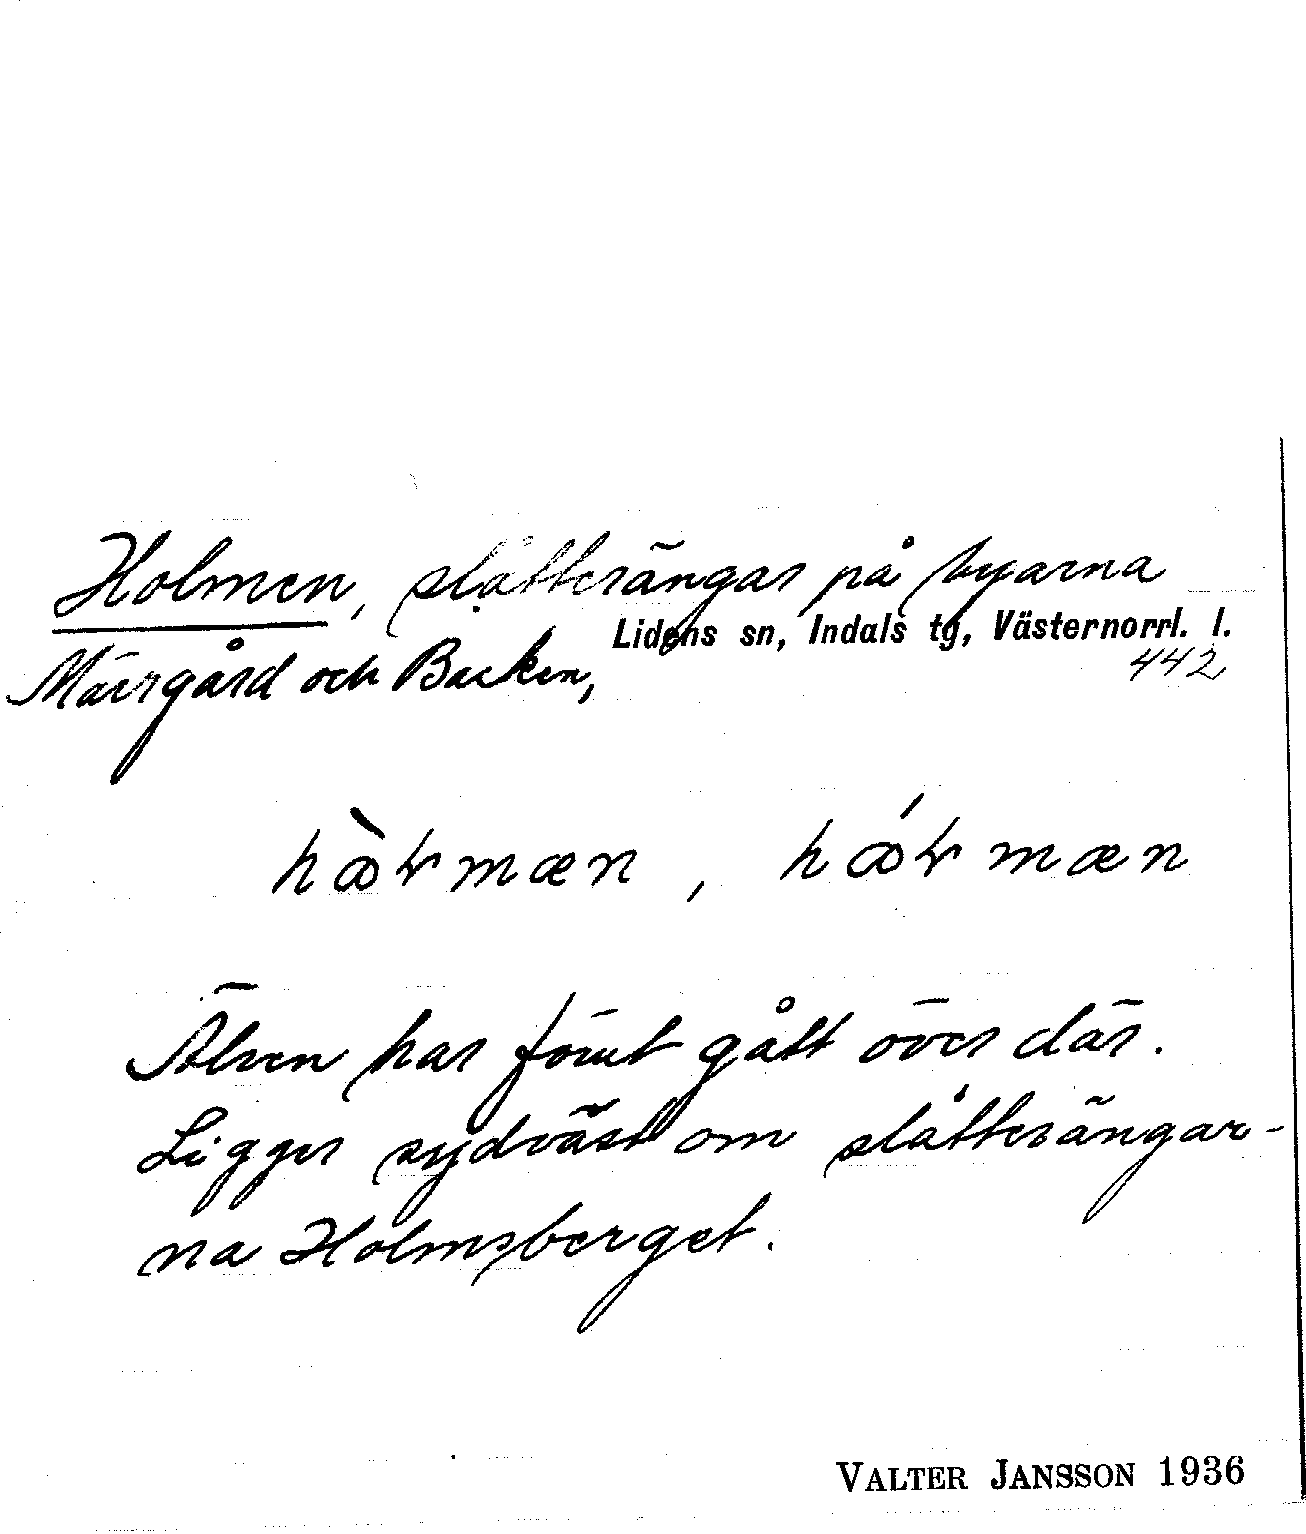 Holmen, slåtterängar på byarna
Lidens sn, Indals tg, Västernorrl. l.
442
och Backen,
Älven har förut gått över där.
Ligger sydväst om slåtterängar-
na Holmsberget.
VALTER JANSSON 1936